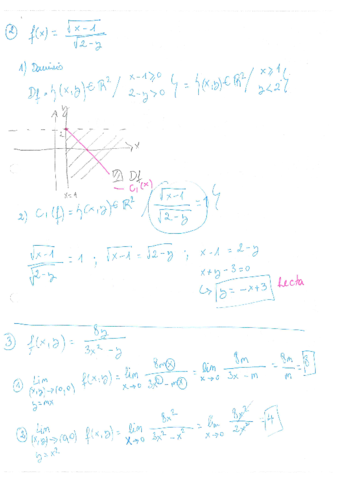 ② f(x) = √(x-1) / √(2-y)
1) Dominio
Df = {(x,y) ∈ ℝ² / x-1 ≥ 0 2-y > 0} = {(x,y) ∈ ℝ² / x ≥ 1 y < 2}
A y
2
x
x=1
Df
C₁(x)
2) C₁(f) = {(x,y) ∈ ℝ² / √(x-1) / √(2-y) = 1}
√(x-1) / √(2-y) = 1 ; √(x-1) = √(2-y) ; x-1 = 2-y
x+y-3=0
↳ y = -x+3 Recta
③ f(x,y) = 8y / (3x²-y)
① lim (x,y)→(0,0) y=mx f(x,y) = lim x→0 8mx / (3x²-mx) = lim x→0 8m / (3x-m) = 8m / m =
② lim (x,y)→(0,0) y=x² f(x,y) = lim x→0 8x² / (3x²-x²) = lim x→0 8x² / 2x² = 4